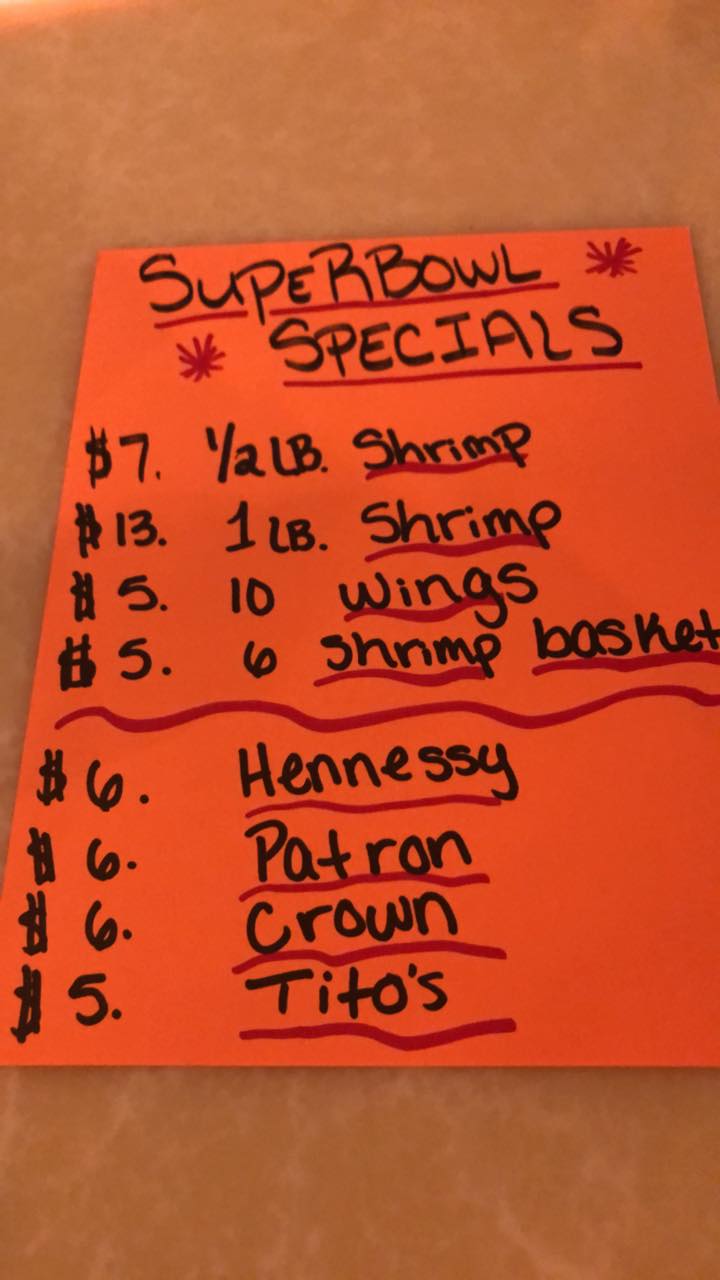 SUPERBOWL
SPECIALS
$7. 1/2 LB. Shrimp
$13. 1 LB. Shrimp
$5. 10 wings
$5. 6 shrimp basket
$6. Hennessy
$6. Patron
$6. Crown
$5. Tito's